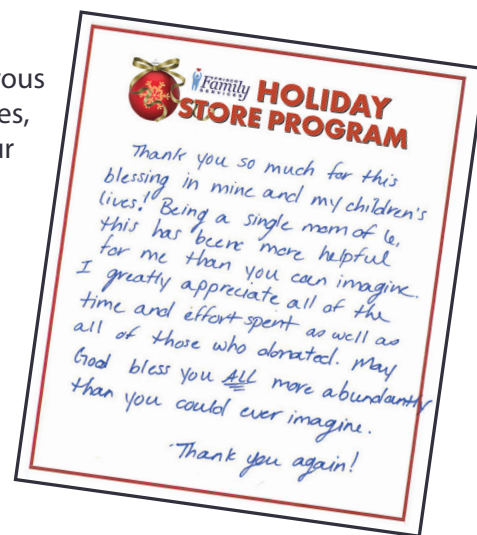 ous
es,
ur
FRISCO
Family
SERVICES
HOLIDAY
STORE PROGRAM
Thank you so much for this
blessing in mine and my children's
lives! Being a single mom of 6,
this has been more helpful
for me than you can imagine.
I greatly appreciate all of the
time and effort spent as well as
all of those who donated. May
God bless you ALL more abundantly
than you could ever imagine.
Thank you again!